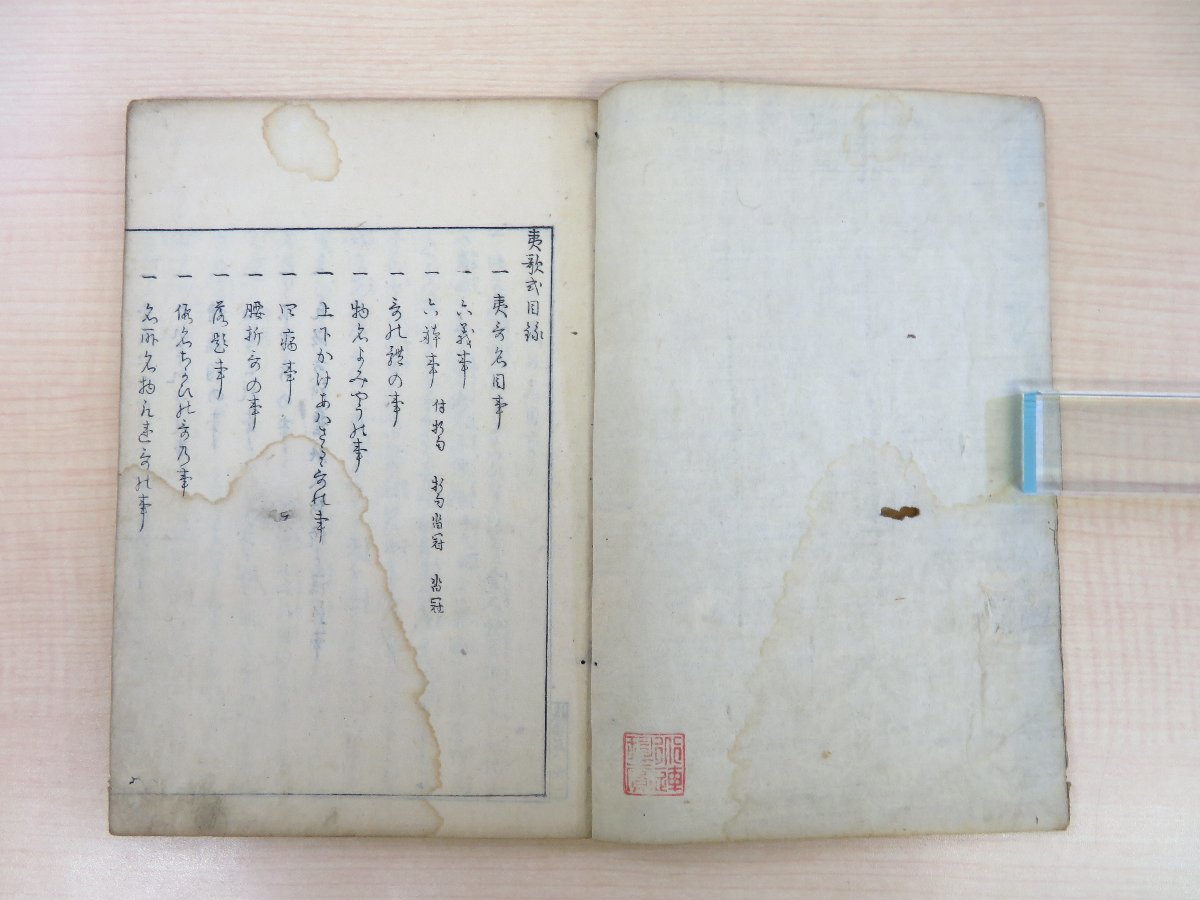 夷歌式目録
一 夷哥名目事
一 六義事
一 六躰事 付 折句 折句沓冠 沓冠
一 哥の躰の事
一 物名よみやうの事
一 上下かけあハさる哥の事
一 四病事
一 腰折哥の事
一 落題事
一 仮名ちかひの哥乃事
一 名所名物取違哥の事